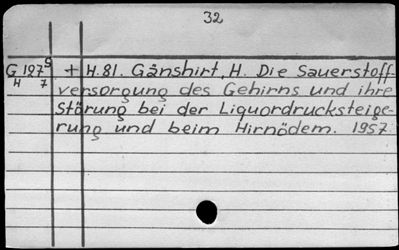 32
G 127 9 + H.81. Gänshirt, H. Die Sauerstoff-
H 7 versorgung des Gehirns und ihre
Störung bei der Liquordrucksteige-
rung und beim Hirnödem. 1957